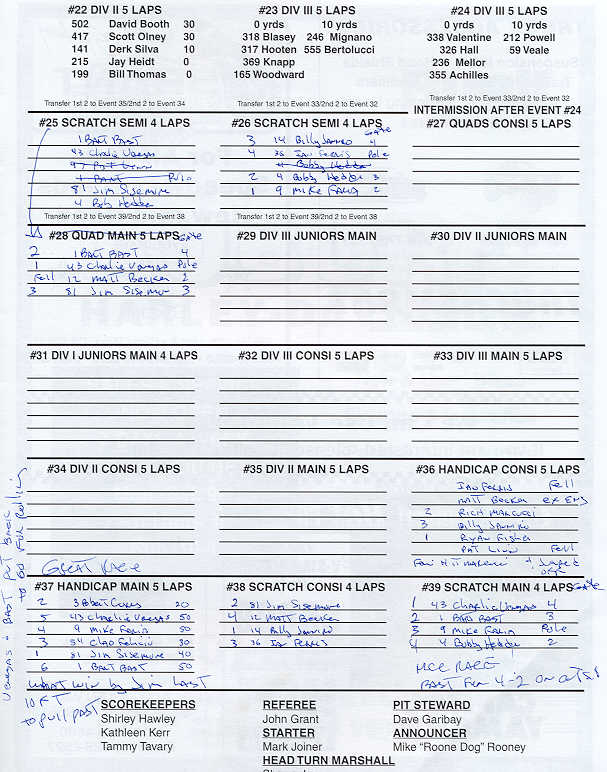 #22 DIV II 5 LAPS
502 David Booth 30
417 Scott Olney 30
141 Derk Silva 10
215 Jay Heidt 0
199 Bill Thomas 0
Transfer 1st 2 to Event 35/2nd 2 to Event 34
#23 DIV III 5 LAPS
0 yrds 10 yrds
318 Blasey 246 Mignano
317 Hooten 555 Bertolucci
369 Knapp
165 Woodward
Transfer 1st 2 to Event 33/2nd 2 to Event 32
#24 DIV III 5 LAPS
0 yrds 10 yrds
338 Valentine 212 Powell
326 Hall 59 Veale
236 Mellor
355 Achilles
Transfer 1st 2 to Event 33/2nd 2 to Event 32
INTERMISSION AFTER EVENT #24
#25 SCRATCH SEMI 4 LAPS
1 BART BAST
43 Charlie Venegas
81 Jim Sisemore
4 Bob Hedden
Transfer 1st 2 to Event 39/2nd 2 to Event 38
#26 SCRATCH SEMI 4 LAPS
GATE
3 14 Billy Janniro 4
4 36 Ian Ferris Pole
4 Bobby Hedden
2 4 Bobby Hedden 3
1 9 Mike Faria 2
Transfer 1st 2 to Event 39/2nd 2 to Event 38
#27 QUADS CONSI 5 LAPS
#28 QUAD MAIN 5 LAPS GATE
2 1 BART BAST 4
1 43 Charlie Venegas Pole
Fell 12 MATT Becker 2
3 81 Jim Sisemore 3
#29 DIV III JUNIORS MAIN
#30 DIV II JUNIORS MAIN
#31 DIV I JUNIORS MAIN 4 LAPS
#32 DIV III CONSI 5 LAPS
#33 DIV III MAIN 5 LAPS
#34 DIV II CONSI 5 LAPS
#35 DIV II MAIN 5 LAPS
#36 HANDICAP CONSI 5 LAPS
IAN FERRIS Fell
MATT Becker
2 RICH MARCUCCI
3 Billy JANNIRO
1 RYAN Fisher
PAT LINN Fell
GREAT RACE
#37 HANDICAP MAIN 5 LAPS
2 3 20
5 43 Charlie Venegas 50
4 9 Mike Faria 50
3 54 30
1 81 Jim Sisemore 40
6 1 BART BAST 50
WHAT WIN by Jim LAST
10 FT
to pull PAST
#38 SCRATCH CONSI 4 LAPS
2 81 Jim Sisemore
4 12 Matt Becker
1 14 Billy Janniro
3 36 Ian Ferris
#39 SCRATCH MAIN 4 LAPS GATE
1 43 Charlie Venegas 4
2 1 BART BAST 3
3 9 Mike Faria Pole
4 4 Bobby Hedden 2
NICE RACE
SCOREKEEPERS
Shirley Hawley
Kathleen Kerr
Tammy Tavary
REFEREE
John Grant
STARTER
Mark Joiner
HEAD TURN MARSHALL
PIT STEWARD
Dave Garibay
ANNOUNCER
Mike "Roone Dog" Rooney